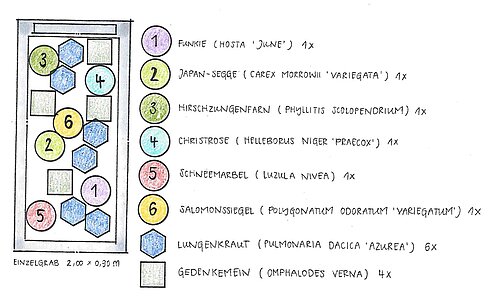 3
4
6
2
1
5
EINZELGRAB 2,00 x 0,90 M
1 FUNKIE (HOSTA 'JUNE') 1x
2 JAPAN-SEGGE (CAREX MORROWII 'VARIEGATA') 1x
3 HIRSCHZUNGENFARN (PHYLLITIS SCOLOPENDRIUM) 1x
4 CHRISTROSE (HELLEBORUS NIGER 'PRAECOX') 1x
5 SCHNEEMARBEL (LUZULA NIVEA) 1x
6 SALOMONSSIEGEL (POLYGONATUM ODORATUM 'VARIEGATUM') 1x
LUNGENKRAUT (PULMONARIA DACICA 'AZUREA') 6x
GEDENKEMEIN (OMPHALODES VERNA) 4x